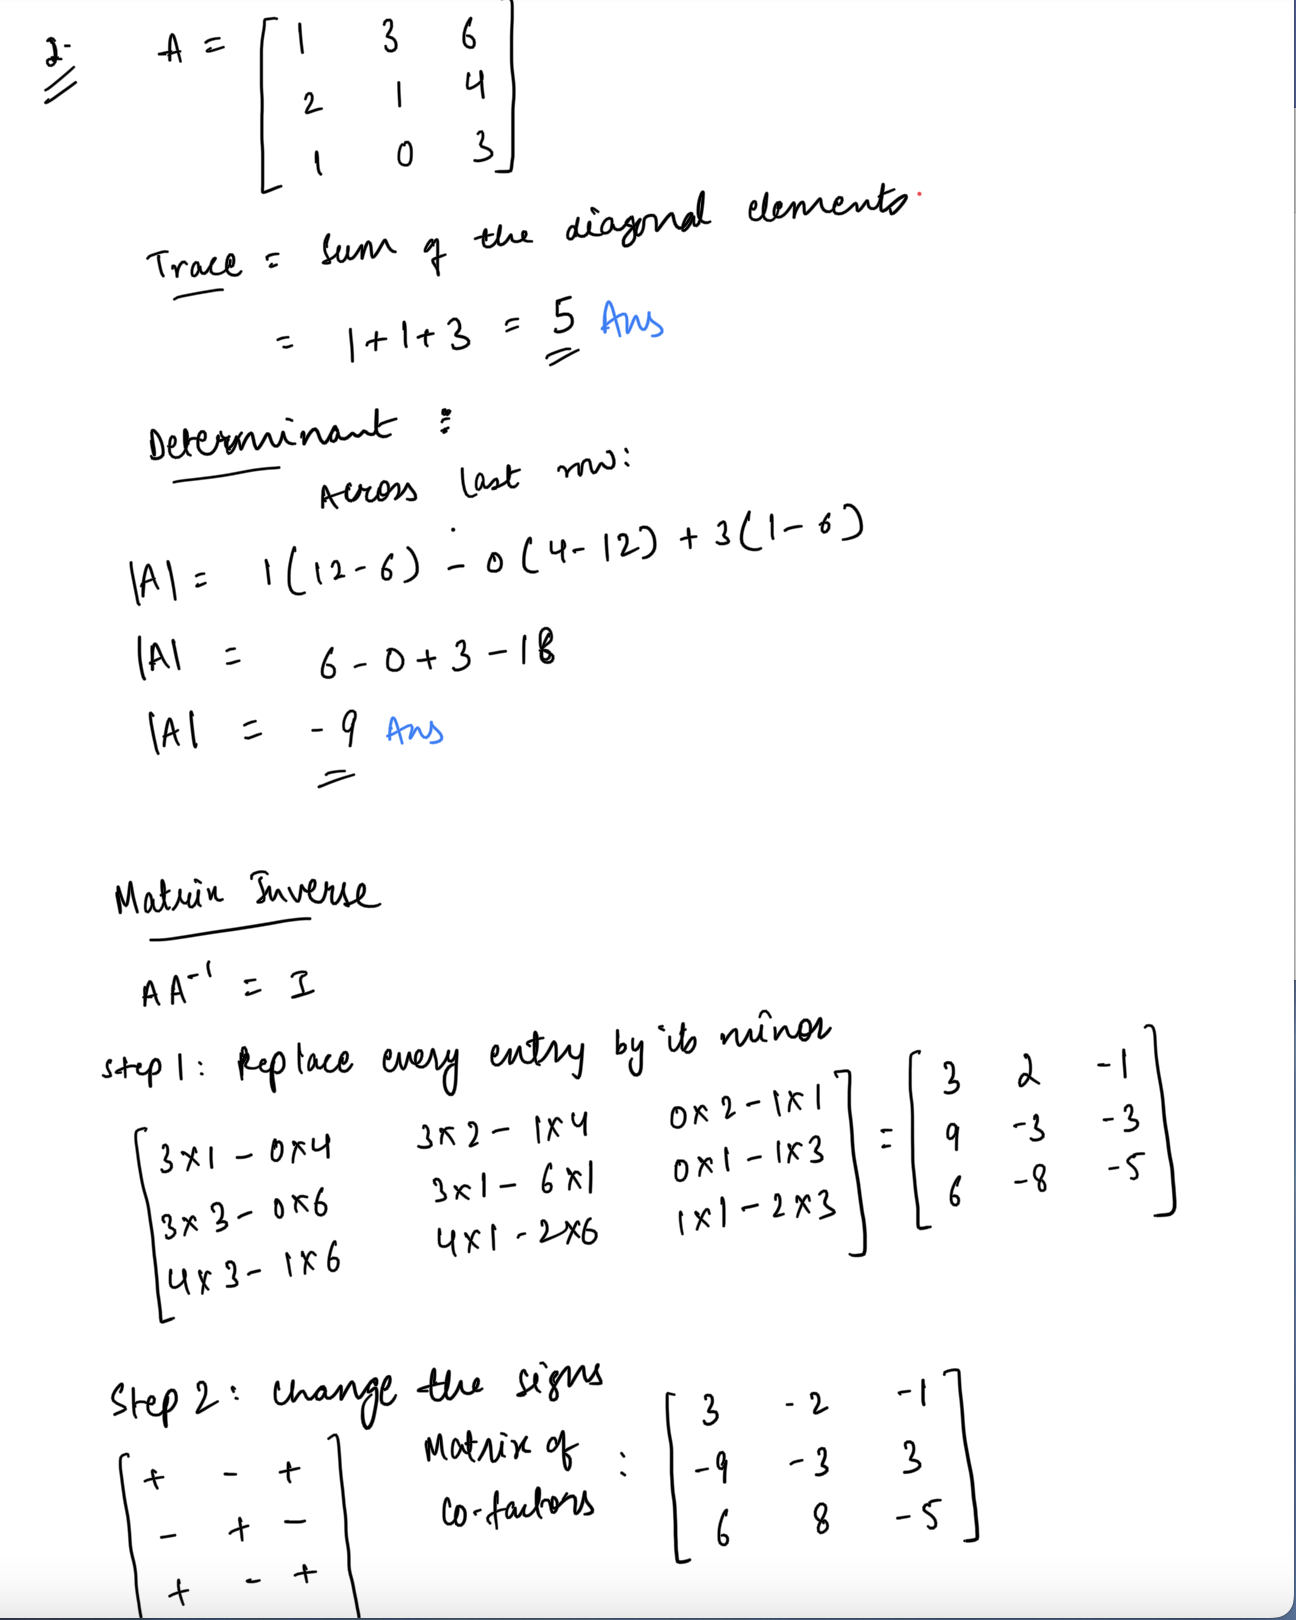 2. A = [ 1 3 6
2 1 4
1 0 3 ]
Trace = Sum of the diagonal elements.
= 1+1+3 = 5 Ans
Determinant :
Across last row:
|A| = 1(12-6) - 0(4-12) + 3(1-6)
|A| = 6-0+3-18
|A| = -9 Ans
Matrix Inverse
AA⁻¹ = I
Step 1: Replace every entry by its minor
[ 3×1-0×4 3×2-1×4 0×2-1×1
3×3-0×6 3×1-6×1 0×1-1×3
4×3-1×6 4×1-2×6 1×1-2×3 ] = [ 3 2 -1
9 -3 -3
6 -8 -5 ]
Step 2: change the signs
[ + - +
- + -
+ - + ]
Matrix of
co-factors : [ 3 -2 -1
-9 -3 3
6 8 -5 ]